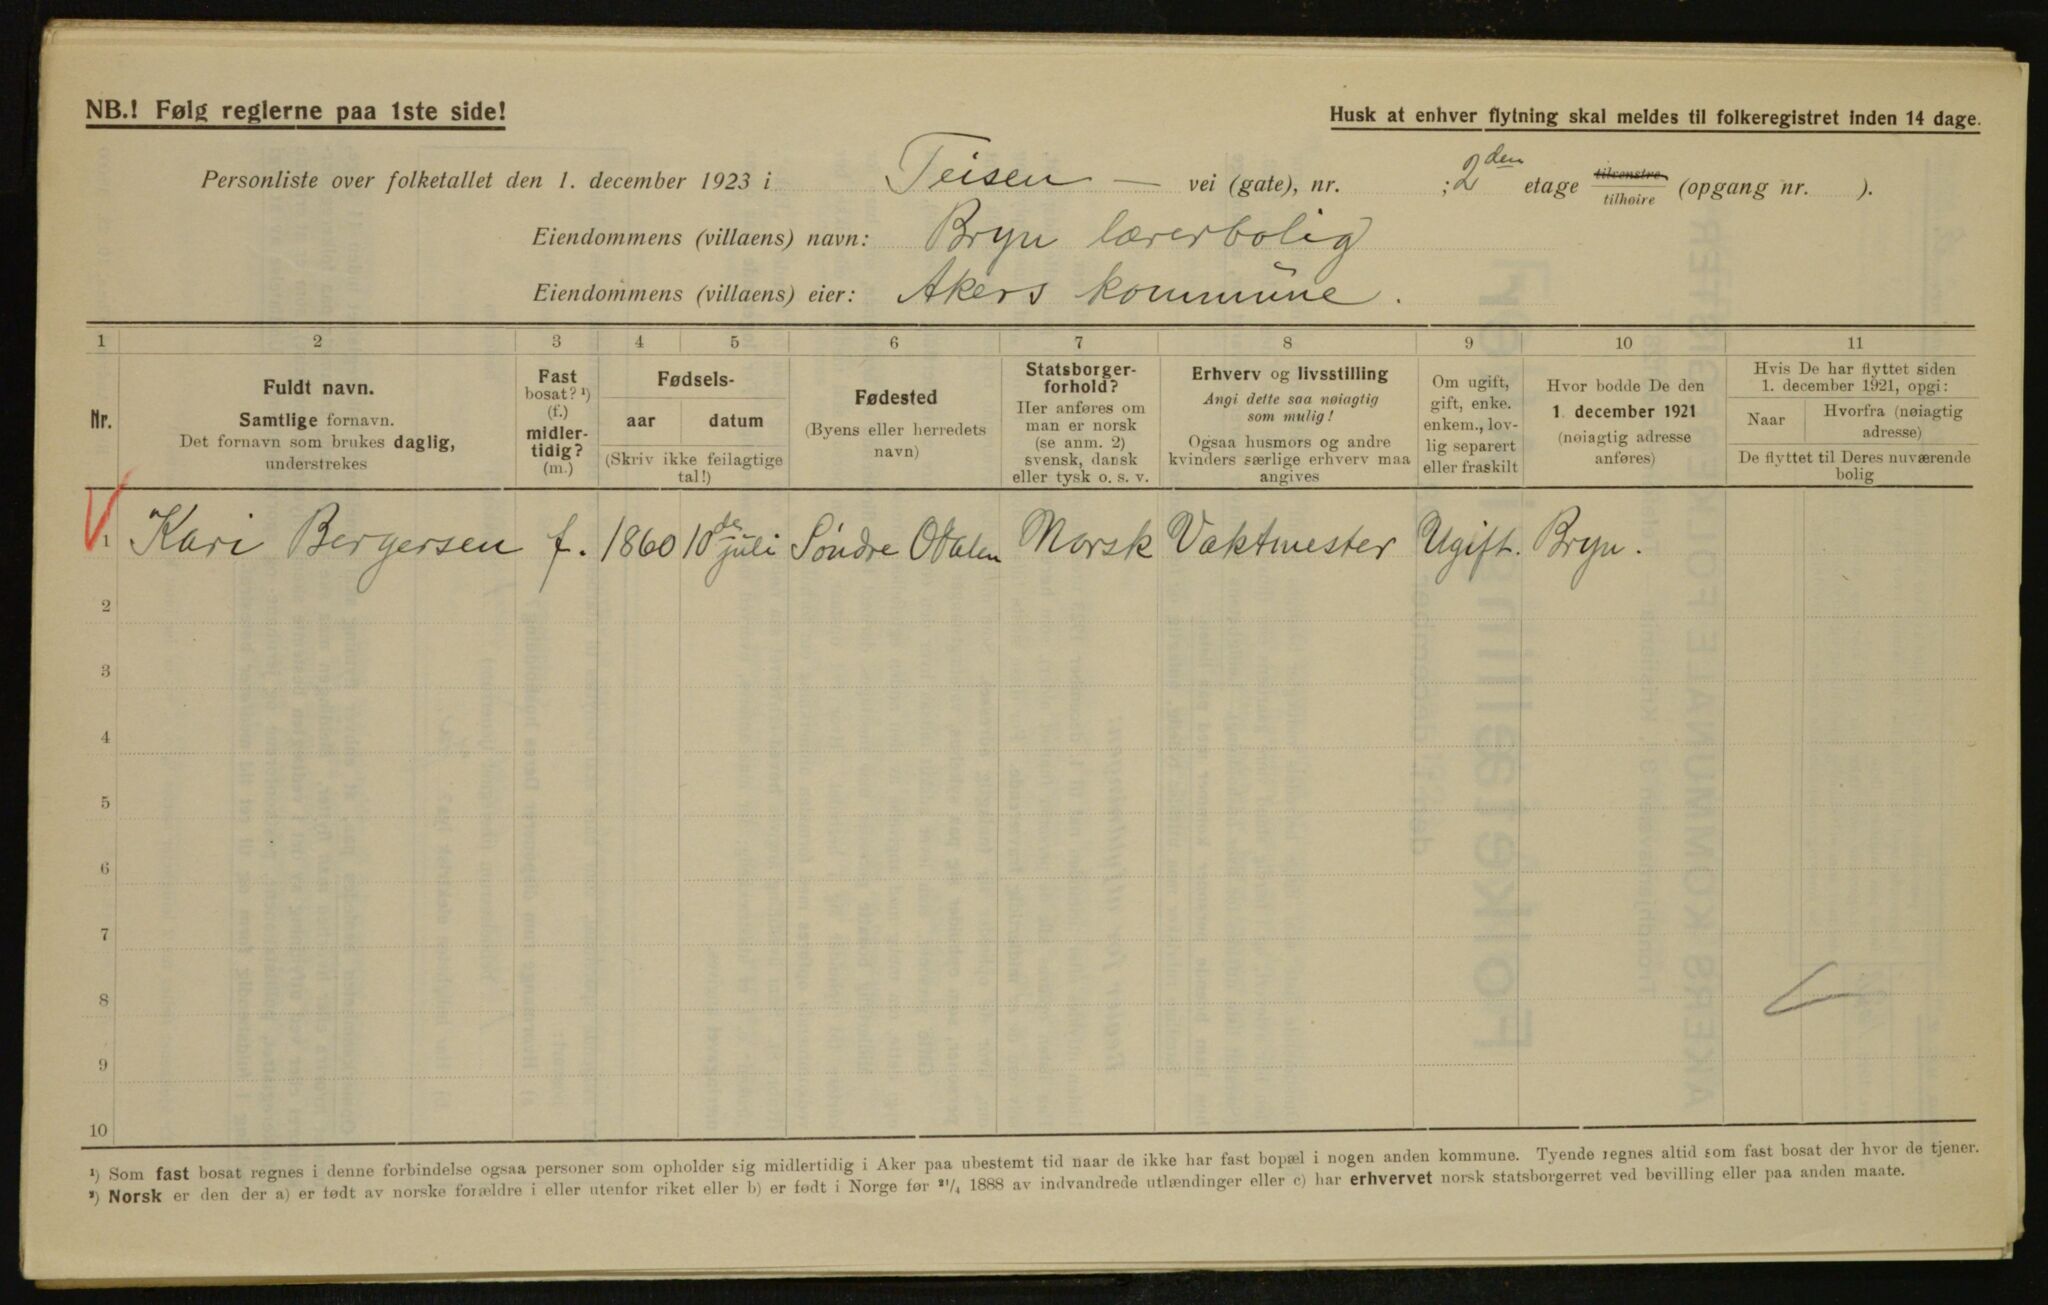 NB.! Følg reglerne paa 1ste side!
Husk at enhver flytning skal meldes til folkeregistret inden 14 dage.
Personliste over folketallet den 1. december 1923 i Teisen — vei (gate), nr. ; 2den etage tilvenstre/tilhøire (opgang nr. ).
Eiendommens (villaens) navn: Bryn lærerbolig
Eiendommens (villaens) eier: Akers kommune.
1 2 3 4 5 6 7 8 9 10 11
Nr.
Fuldt navn.
Samtlige fornavn.
Det fornavn som brukes daglig,
understrekes
Fast
bosat? ¹)
(f.)
midler-
tidig?
(m.)
Fødsels-
aar datum
(Skriv ikke feilagtige
tal!)
Fødested
(Byens eller herredets
navn)
Statsborger-
forhold?
Her anføres om
man er norsk
(se anm. 2)
svensk, dansk
eller tysk o. s. v.
Erhverv og livsstilling
Angi dette saa nøiagtig
som mulig!
Ogsaa husmors og andre
kvinders særlige erhverv maa
angives
Om ugift,
gift, enke.
enkem., lov-
lig separert
eller fraskilt
Hvor bodde De den
1. december 1921
(nøiagtig adresse
anføres)
Hvis De har flyttet siden
1. december 1921, opgi:
Naar
Hvorfra (nøiagtig
adresse)
De flyttet til Deres nuværende
bolig
1 Kari Bergersen f. 1860 10de juli Søndre Odalen Norsk Vaktmester Ugift. Bryn.
2
3
4
5
6
7
8
9
10
¹) Som fast bosat regnes i denne forbindelse ogsaa personer som opholder sig midlertidig i Aker paa ubestemt tid naar de ikke har fast bopæl i nogen anden kommune. Tyende regnes altid som fast bosat der hvor de tjener.
²) Norsk er den der a) er født av norske forældre i eller utenfor riket eller b) er født i Norge før ²¹/₄ 1888 av indvandrede utlændinger eller c) har erhvervet norsk statsborgerret ved bevilling eller paa anden maate.